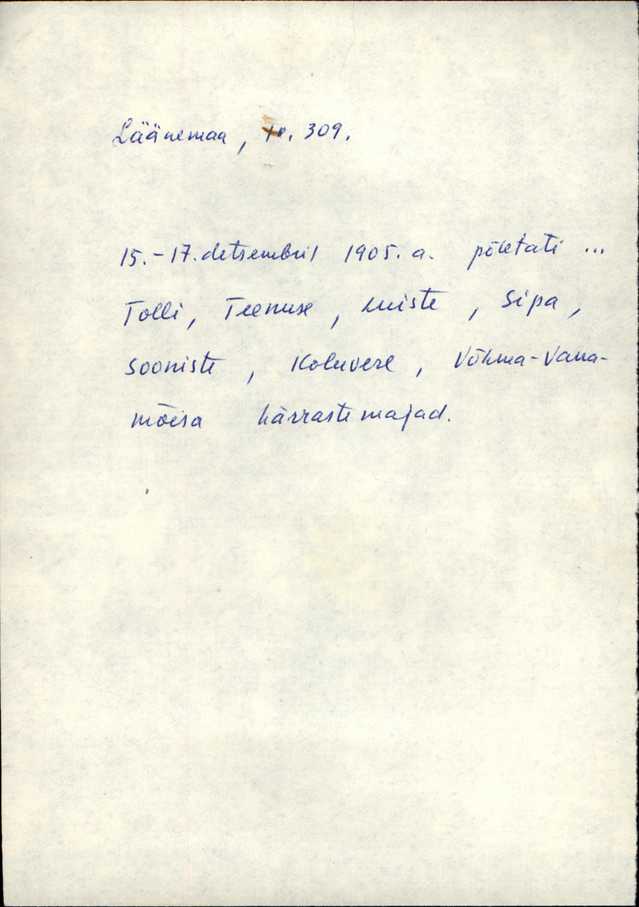 Läänemaa, lk. 309.
15.-17. detsembril 1905. a. põletati ...
Tolli, Teenuse, Luiste, Sipa,
Sooniste, Koluvere, Võhma-Vana-
mõisa härrastemajad.